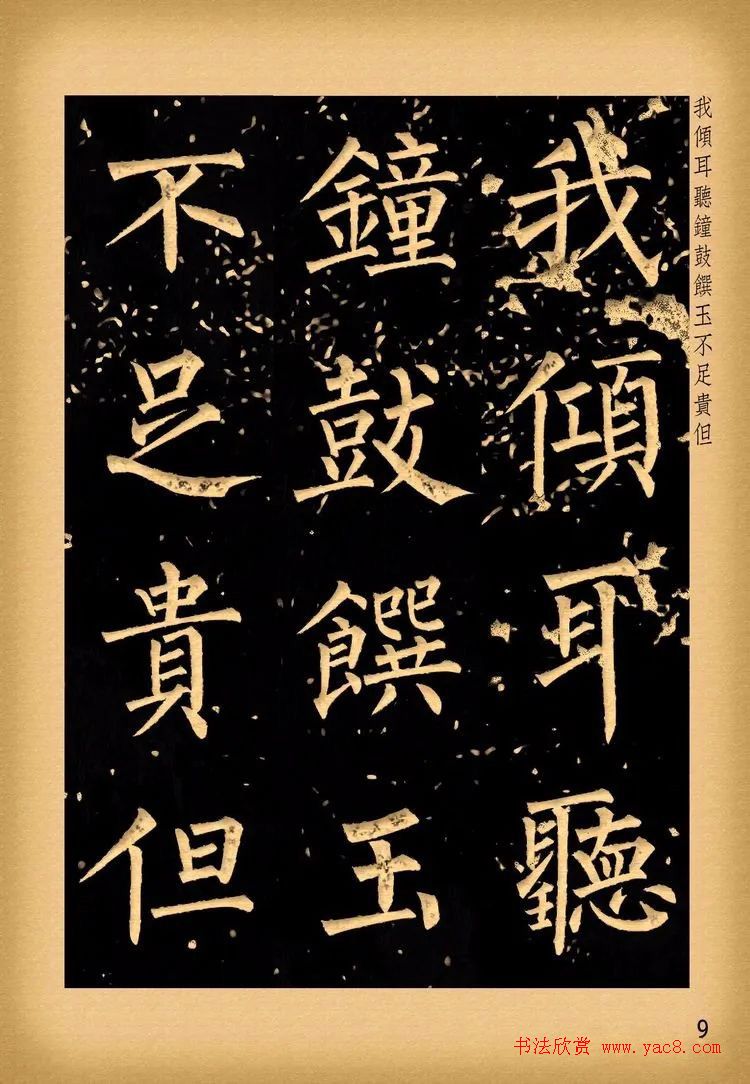 我傾耳聽
鐘鼓饌玉
不足貴但
我傾耳聽鐘鼓饌玉不足貴但
9
书法欣赏 www.yac8.com